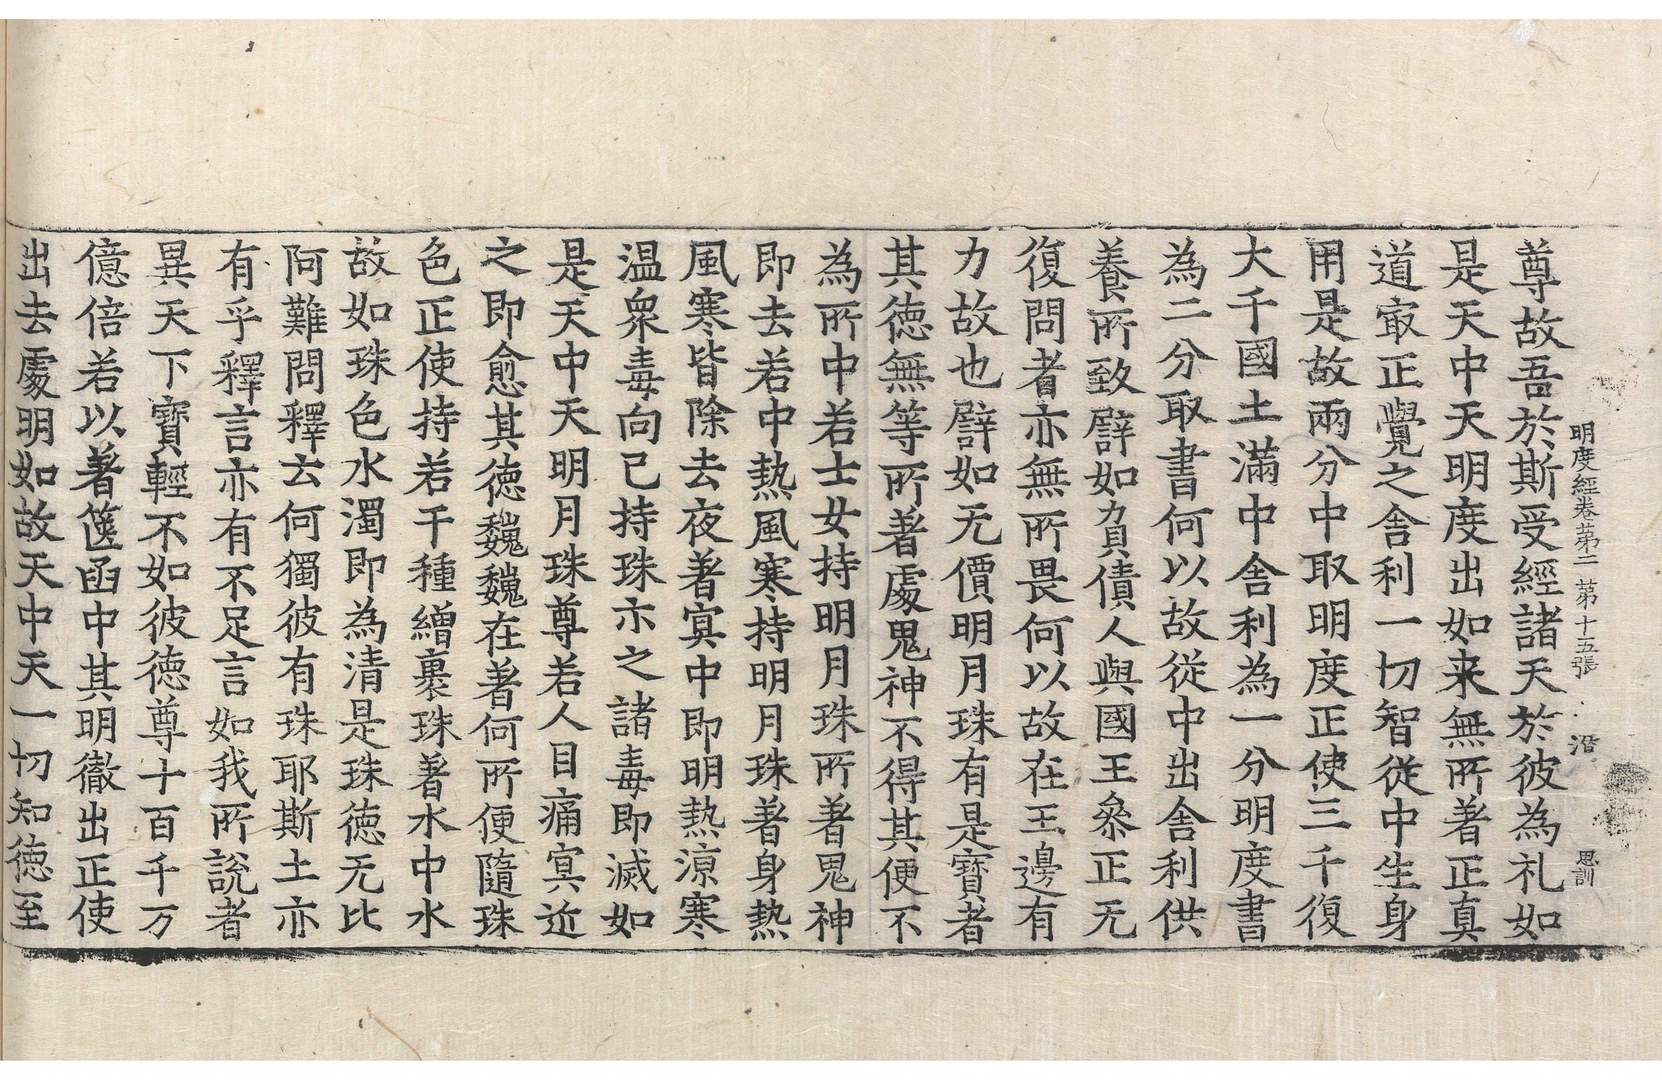 明度經卷第二 第十五張 沿 思訓
尊故吾於斯受經諸天於彼為礼如
是天中天明度出如来無所著正真
道㝡正覺之舍利一切智從中生身
用是故兩分中取明度正使三千復
大千國土滿中舍利為一分明度書
為二分取書何以故從中出舍利供
養所致譬如負債人與國王叅正无
復問者亦無所畏何以故在王邊有
力故也譬如无價明月珠有是寶者
其德無等所著處鬼神不得其便不
為所中若士女持明月珠所著鬼神
即去若中熱風寒持明月珠著身熱
風寒皆除去夜著㝠中即明熱涼寒
温衆毒向己持珠示之諸毒即滅如
是天中天明月珠尊若人目痛㝠近
之即愈其德魏魏在著何所便隨珠
色正使持若干種繒裹珠著水中水
故如珠色水濁即為清是珠德无比
阿難問釋云何獨彼有珠耶斯土亦
有乎釋言亦有不足言如我所說者
異天下寶輕不如彼德尊十百千万
億倍若以著篋函中其明徹出正使
出去處明如故天中天一切知德至